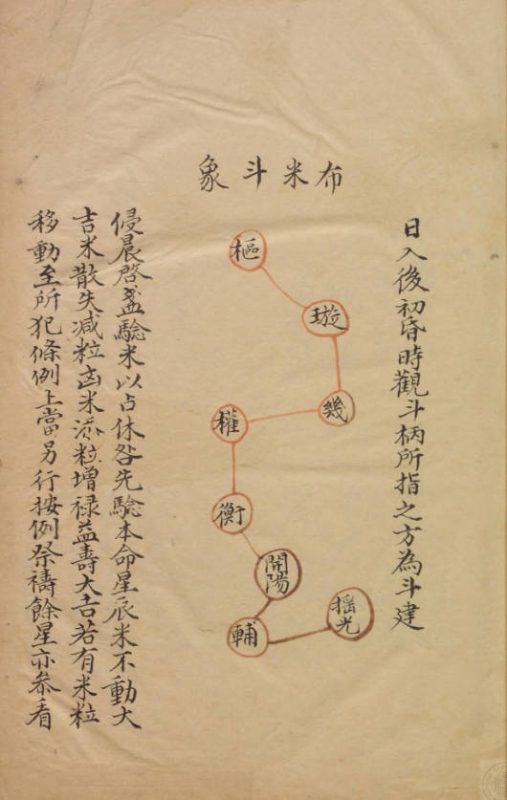 布米斗象
日入後初昏時觀斗柄所指之方為斗建
樞
璇
幾
權
衡
開陽
輔
揺光
侵晨啓盖驗米以占休咎先驗本命星辰米不動大
吉米散失减粒凶米添粒增禄益壽大吉若有米粒
移動至所犯條例上當另行按例祭禱餘星亦叅看